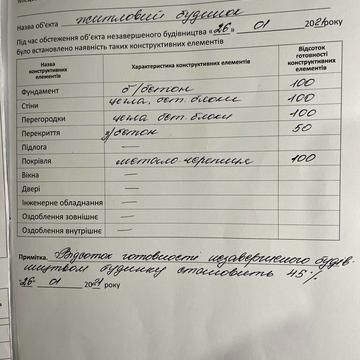 Назва об'єкта житловий будинок
Під час обстеження об'єкта незавершеного будівництва «26» 01 2021 року
було встановлено наявність таких конструктивних елементів
Назва конструктивних елементів Характеристика конструктивних елементів Відсоток готовності конструктивних елементів
Фундамент б/бетон 100
Стіни цегла, бет. блоки 100
Перегородки цегла бет. блоки 100
Перекриття з/бетон 50
Підлога —
Покрівля метало черепиця 100
Вікна —
Двері —
Інженерне обладнання —
Оздоблення зовнішнє —
Оздоблення внутрішнє —
Примітка. Відсоток готовності незавершеного будів-
ництвом будинку становить 45 %
«26» 01 2021 року